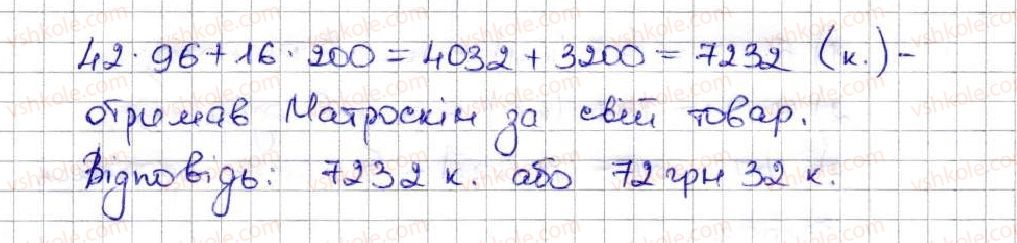 42 · 96 + 16 · 200 = 4032 + 3200 = 7232 (к.) –
отримав Матроскін за свій товар.
Відповідь: 7232 к. або 72 грн 32 к.